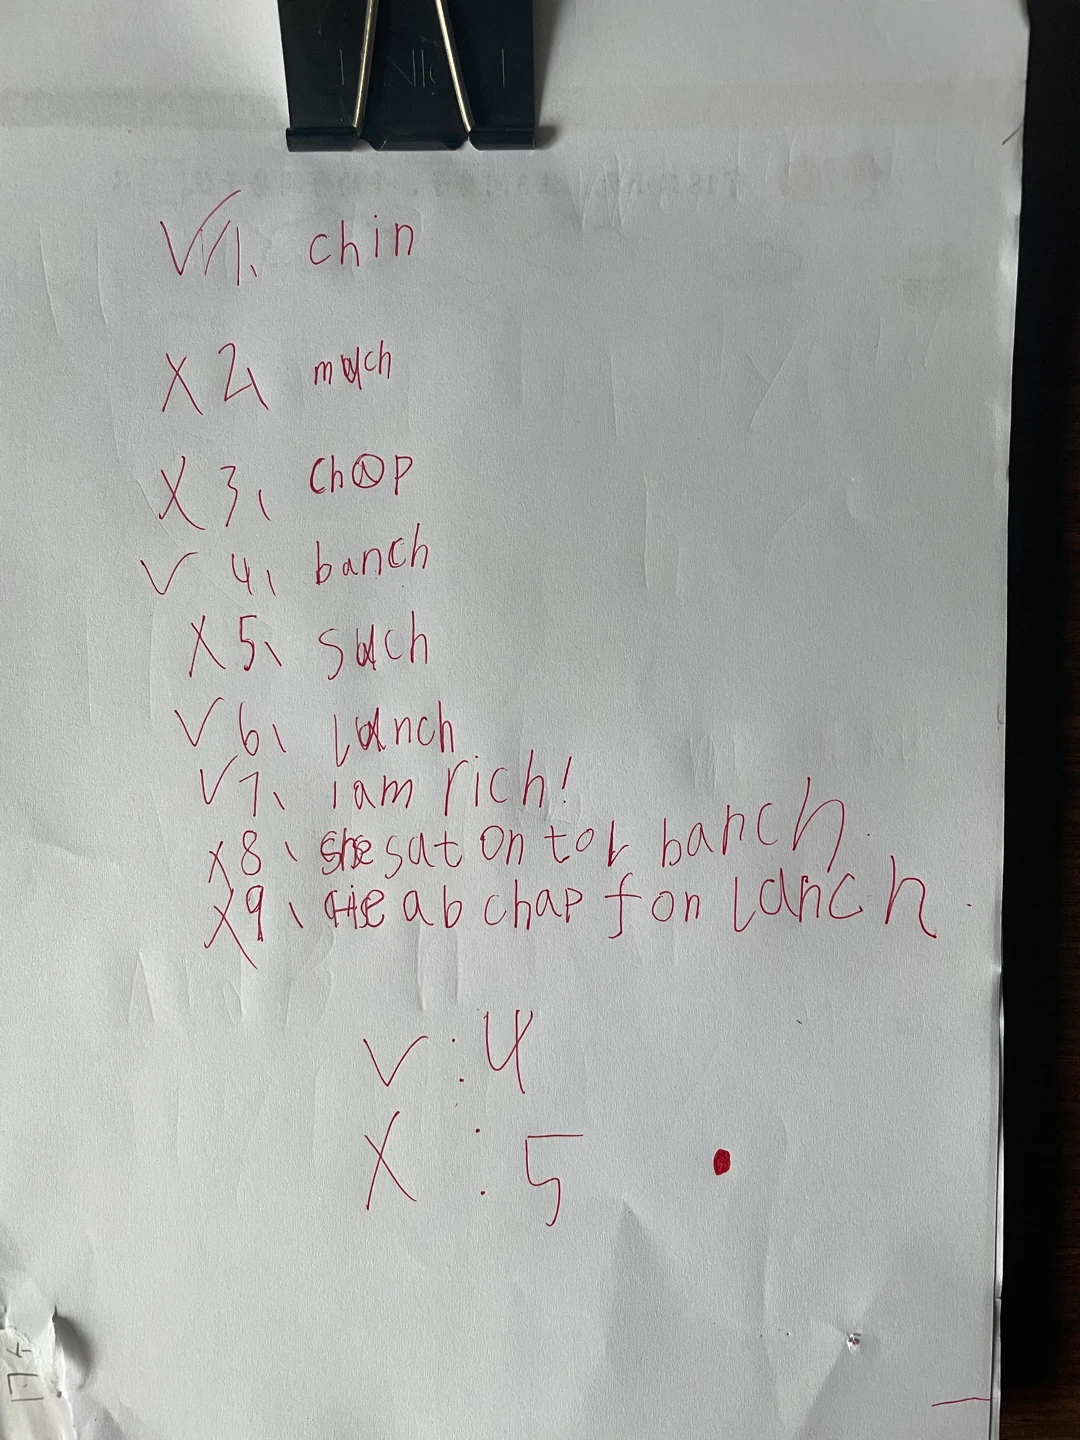 √ 1、 chin
X 2、 much
X 3、 chop
√ 4、 banch
X 5、 such
√ 6、 lanch
√ 7、 i am rich!
X 8、 she sat on tol banch.
X 9、 he ab chap fon lanch.
√ : 4
X : 5